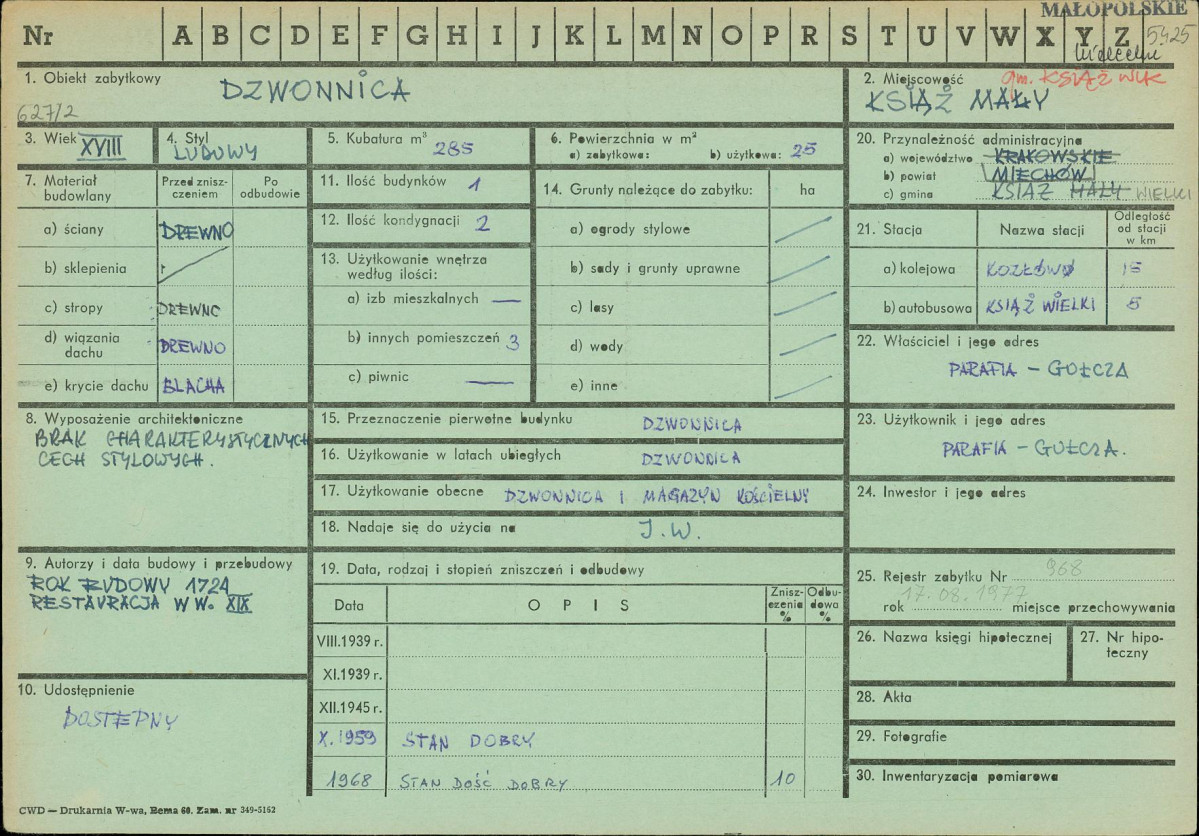 MAŁOPOLSKIE
Nr A B C D E F G H I J K L M N O P R S T U V W X Y Z
5425
1. Obiekt zabytkowy
DZWONNICA
627/2
2. Miejscowość
gm. KSIĄŻ WLK
KSIĄŻ MAŁY
3. Wiek XVIII
4. Styl
LUDOWY
5. Kubatura m³ 285
6. Powierzchnia w m²
a) zabytkowa: b) użytkowa: 25
20. Przynależność administracyjna
a) województwo KRAKOWSKIE
b) powiat MIECHÓW
c) gmina KSIĄŻ MAŁY WIELKI
7. Materiał budowlany
Przed zniszczeniem
Po odbudowie
a) ściany DREWNO
b) sklepienia
c) stropy DREWNO
d) wiązania dachu DREWNO
e) krycie dachu BLACHA
11. Ilość budynków 1
12. Ilość kondygnacji 2
13. Użytkowanie wnętrza
według ilości:
a) izb mieszkalnych —
b) innych pomieszczeń 3
c) piwnic —
14. Grunty należące do zabytku: ha
a) ogrody stylowe
b) sady i grunty uprawne
c) lasy
d) wody
e) inne
21. Stacja
Nazwa stacji
Odległość
od stacji
w km
a) kolejowa KOZŁÓW 15
b) autobusowa KSIĄŻ WIELKI 5
22. Właściciel i jego adres
PARAFIA – GOŁCZA
8. Wyposażenie architektoniczne
BRAK CHARAKTERYSTYCZNYCH
CECH STYLOWYCH.
15. Przeznaczenie pierwotne budynku DZWONNICA
16. Użytkowanie w latach ubiegłych DZWONNICA
17. Użytkowanie obecne DZWONNICA I MAGAZYN KOŚCIELNY
18. Nadaje się do użycia na J.W.
23. Użytkownik i jego adres
PARAFIA – GOŁCZA.
24. Inwestor i jego adres
9. Autorzy i data budowy i przebudowy
ROK BUDOWY 1724
RESTAURACJA W W. XIX
19. Data, rodzaj i stopień zniszczeń i odbudowy
Data
O P I S
Zniszczenia
%
Odbudowa
%
VIII.1939 r.
XI.1939 r.
XII.1945 r.
X. 1959 STAN DOBRY
1968 STAN DOŚĆ DOBRY 10
25. Rejestr zabytku Nr 968
17.08.1977
rok miejsce przechowywania
26. Nazwa księgi hipotecznej
27. Nr hipoteczny
10. Udostępnienie
DOSTĘPNY
28. Akta
29. Fotografie
30. Inwentaryzacja pomiarowa
CWD — Drukarnia W-wa, Bema 60. Zam. nr 349-5162